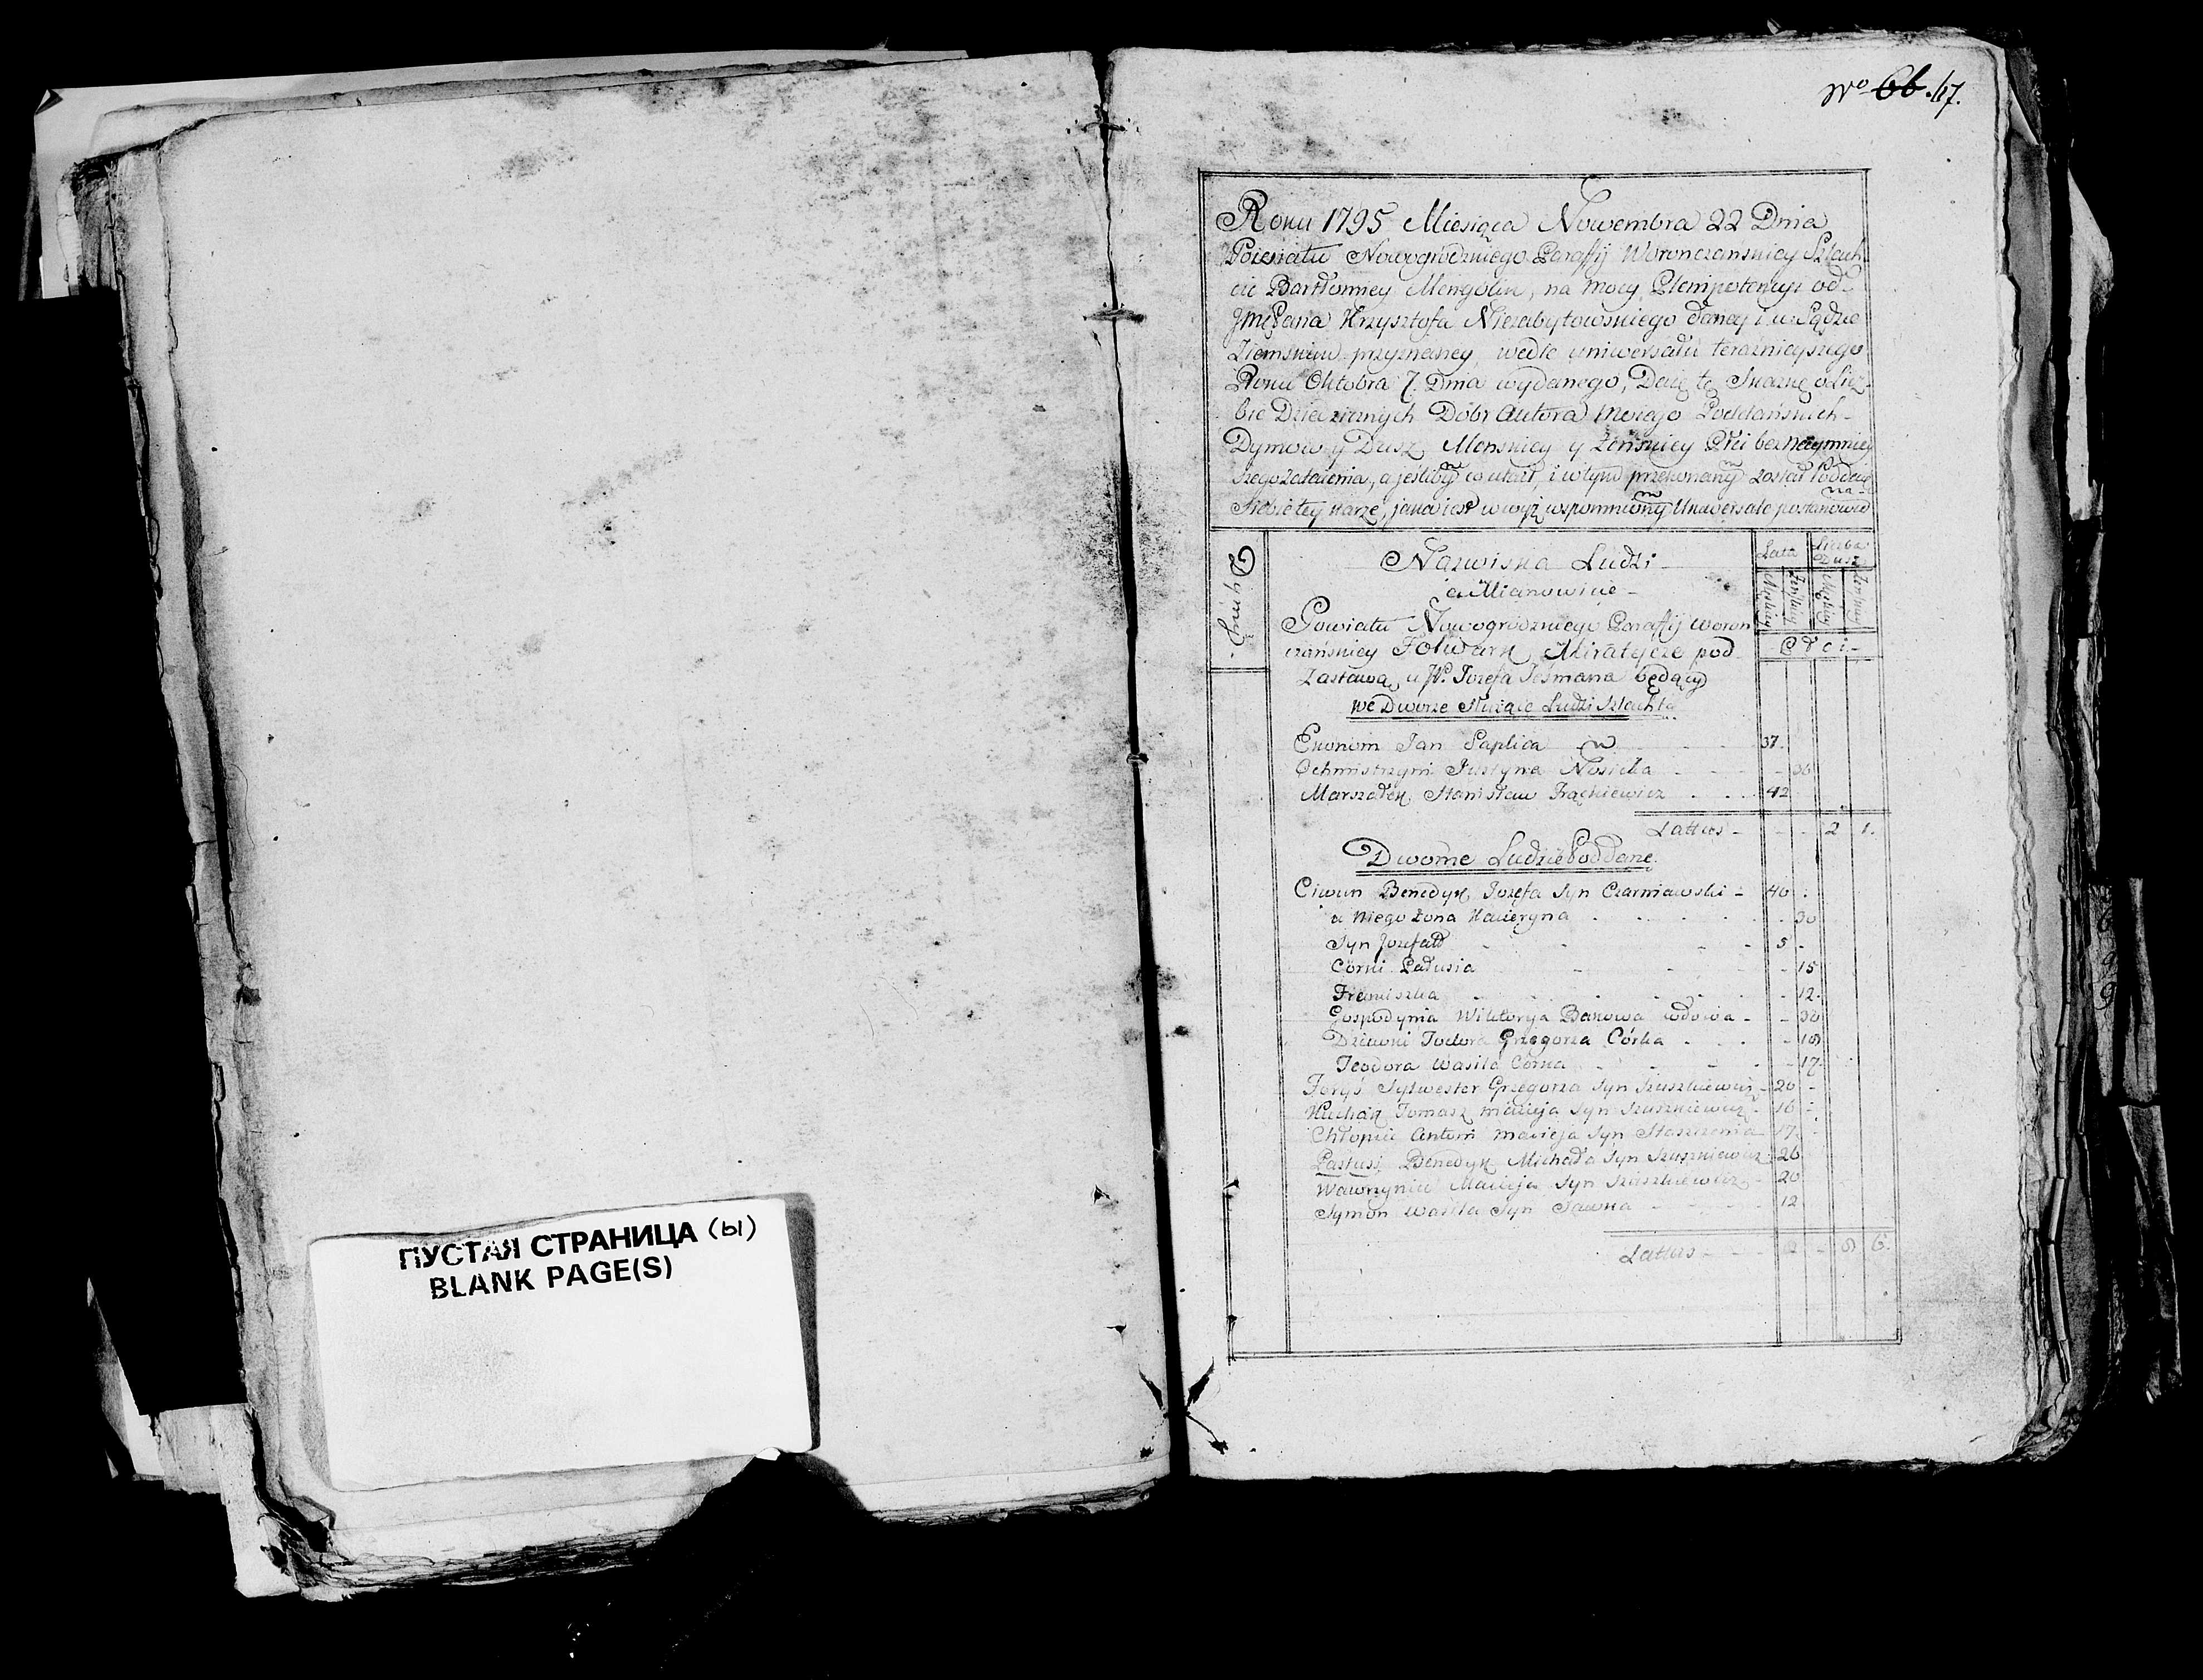 ПУСТАЯ СТРАНИЦА (ы)
BLANK PAGE(S)
No 66. 17.
Roku 1795 Miesiąca Nowembra 22 Dnia
Powiatu Nowogrodzkiego Paraffij Woronczanskiey Szlach
cic Bartłomiey Mongolin, na mocy Plenipotencyi od
JmPana Krzysztofa Niezabytowskiego daney i u Sądzie
Ziemskim przyznaney, wedle uniwersału teraznieyszego
Roku Oktobra 7. Dnia wydanego, Daię tę Skazkę o Licz-
bie Dziedzicznych Dobr Autora moiego Poddańskich
Dymow y Dusz Męnskiey y Żeńskiey Płci bez naymniey
szego zataienia, a jesliby co utait, i w tym przekonany został Poddaię
siebie tey karze, jaka iest w wyż wspomnionym Uniwersale postanowio
na-
Dymy
Nazwiska Ludzi
a Mianowicie
Lata
Liczba Dusz
Męskiey
Żeńskiey
Męskiey
Żeńskiey
Płci
Powiatu Nowogrodzkiego Paraffij Woron
czańskiey Folwark Miratycze pod
Zastawą u W. Jozefa Jesmana będący
we Dworze Służące Ludzi Szlachta
Ekonom Jan Saplica 37.
Ochmistrzyni Justyna Nosicka 36
Marszałek Stanisław Frąckiewicz 42
Lattus - 2 1.
Dworne Ludzie Poddane.
Ciwun Benedyk Jozefa Syn Czarniawski - 40
u Niego Żona Kacieryna 30
Syn Jozefat 5
Corki Pałusia 15
Franciszka 12.
Gospodynia Wiktoryja Bakowa wdowa - 30
Dziewki Todora Grzegorza Córka 18
Teodora Wasila Córka 17
Foryś Sylwester Grzegorza Syn Szuszkiewicz - 20
Kuchak Tomasz Macieja Syn Szuszkiewicz 16
Chłopiec Antoni Macieja Syn 17.
Pastusi Benedyk Michała Syn Szuszkiewicz 26
Wawrzyniec Macieja Syn Szuszkiewicz - 20
Symon Wasila Syn Sawka 12
Lattus - 6.